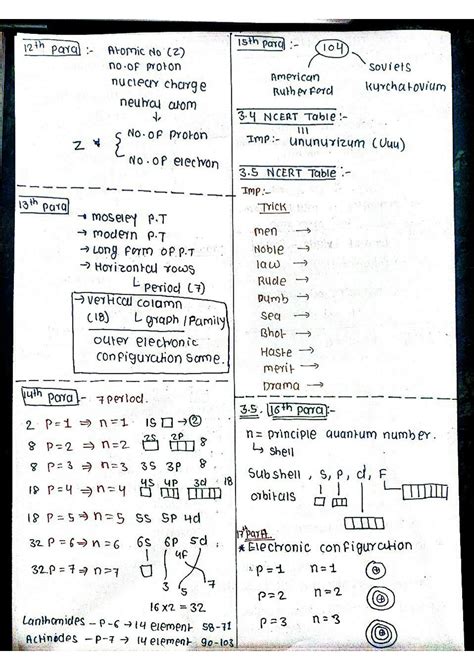 12th para :- Atomic No (Z)
no. of proton
nuclear charge
neutral atom
↓
Z * { No. of Proton
No. of electron
13th para
→ moseley P.T
→ modern P.T
→ Long form of P.T
→ Horizontal rows
↳ Period (7)
→ vertical calamn
(18) ↳ graph/Family
outer electronic
configuration same.
14th para :- 7 period.
2 P=1 ⇒ n=1 1S → ②
8 P=2 ⇒ n=2 2S 2P 8
8 P=3 ⇒ n=3 3S 3P 8
18 P=4 ⇒ n=4 4S 4P 3d 18
18 P=5 ⇒ n=5 5S 5P 4d
32 P=6 ⇒ n=6 6S 6P 5d
4F
32 P=7 ⇒ n=7 1 3 5 7
16x2 = 32
Lanthanides - P-6 → 14 element 58-71
Actinides - P-7 → 14 element 90-103
15th para :- 104
American
Rutherford
Soviets
Kurchatovium
3.4 NCERT Table :-
111
Imp:- Ununurizum (Uuu)
3.5 NCERT Table :-
Imp:-
Trick
men →
Noble →
law →
Rude →
Dumb →
Sea →
Bhot →
Haste →
merit →
Drama →
3.5. 16th para :-
n = principle quantum number.
↳ Shell
Subshell, S, P, d, F
orbitals
17th para.
* Electronic configuration
P=1 n=1
P=2 n=2
P=3 n=3